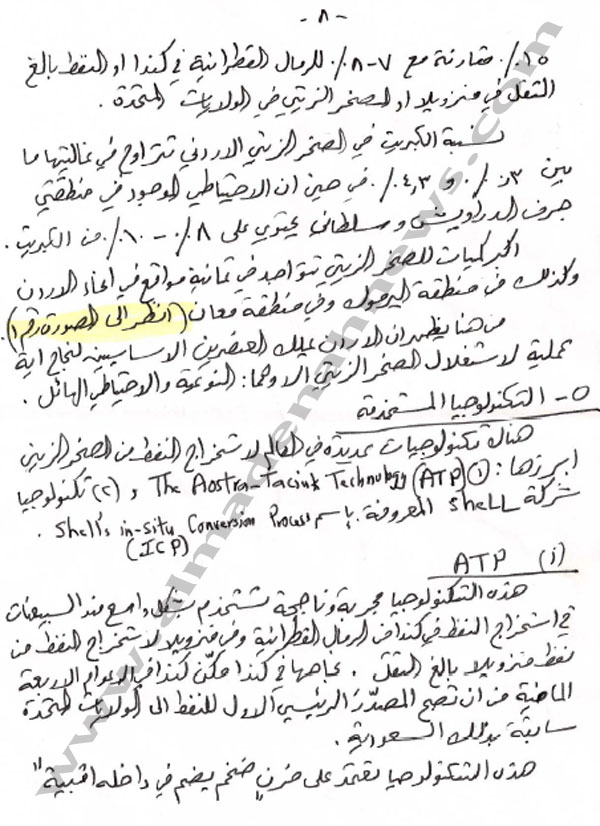 - ٨ -
١٥٪ مقارنة مع ٧-٨٪ للرمال القطرانية في كندا او النفط بالغ
الثقل في فنزويلا او الصخر الزيتي في الولايات المتحدة .
نسبة الكبريت في الصخر الزيتي الاردني تتراوح في غالبيتها ما
بين ٠,٣٪ و ٤,٣٪ في حين ان الاحتياطي الموجود في منطقتي
جرف الدراويش وسلطاني يحتوي على ٨٪ - ١٠٪ من الكبريت .
اكبر كميات للصخر الزيتي تتواجد في ثمانية مواقع في انحاء الاردن
وكذلك في منطقة اليرموك وفي منطقة معان (انظر الى الصورة رقم ١) .
من هنا يظهر ان الاردن يملك العنصرين الاساسيين لنجاح اية
عملية لاستغلال الصخر الزيتي الا وهما: النوعية والاحتياطي الهائل .
٥- التكنولوجيا المستخدمة
هناك تكنولوجيات عديدة في العالم لاستخراج النفط من الصخر الزيتي
ابرزها: ① The Aostra-Taciuk Technology (ATP) و (٢) تكنولوجيا
شركة Shell المعروفة بإسم Shell's in-situ Conversion Process .
(ICP)
(أ) ATP
هذه التكنولوجيا مجربة وناجحة تستخدم بشكل واسع منذ السبعينات
في استخراج النفط في كندا من الرمال القطرانية وفي فنزويلا لاستخراج النفط من
نفط فنزويلا بالغ الثقل . نجاحها في كندا مكّن كندا في الاعوام الاربعة
الماضية من ان تصبح المصدّر الرئيسي الاول للنفط الى الولايات المتحدة
سابقة بذلك السعودية .
هذه التكنولوجيا تعتمد على فرن ضخم يضم في داخله اقبية "
www.almadenahnews.com